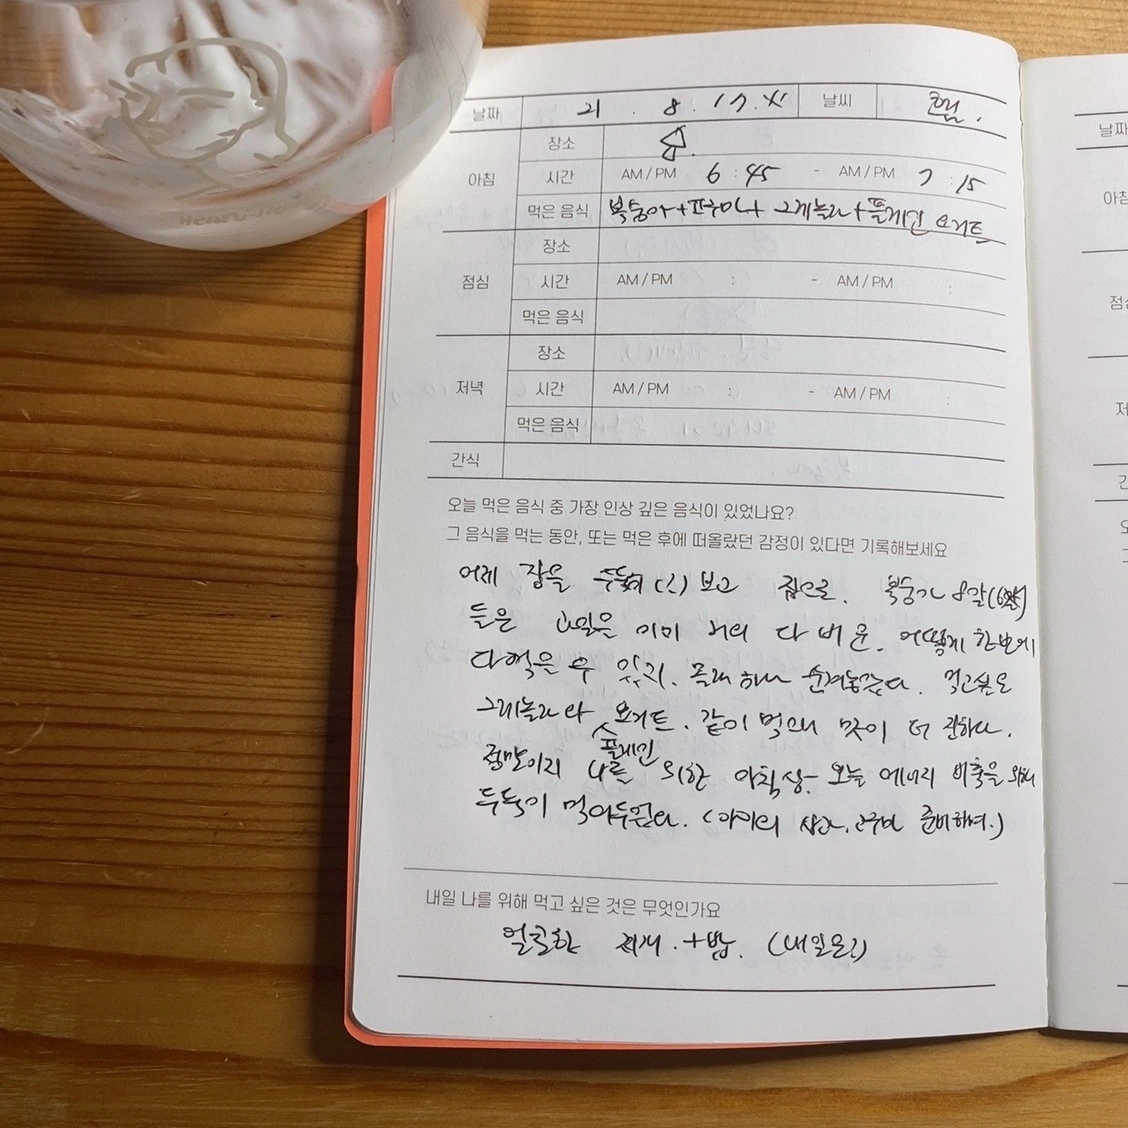 날짜 21 . 8 . 17. 화 날씨 흐림.
아침 장소
시간 AM / PM 6 : 45 - AM / PM 7 : 15
먹은 음식 복숭아+자두+ 그래놀라+플레인 요거트
점심 장소
시간 AM / PM : - AM / PM :
먹은 음식
저녁 장소
시간 AM / PM : - AM / PM :
먹은 음식
간식
오늘 먹은 음식 중 가장 인상 깊은 음식이 있었나요?
그 음식을 먹는 동안, 또는 먹은 후에 떠올랐던 감정이 있다면 기록해보세요
어제 장을 두둑히(?) 보고 집으로. 복숭아
들은 과일을 이미 거의 다 비운. 어떻게 한번에
다 먹을 수 있지. 몰래 하나 숨겨놓았다. 먹고싶은
그래놀라랑 요거트. 같이 먹으니 맛이 더 진하다.
플레인
정말이지 나를 위한 아침상- 오늘 에너지 비축을 위해
두둑이 먹어두었다. (아가의 사과, 고구마 준비하며.)
내일 나를 위해 먹고 싶은 것은 무엇인가요
얼큰한 찌개.+밥. (내일은?)
날짜
아침
점심